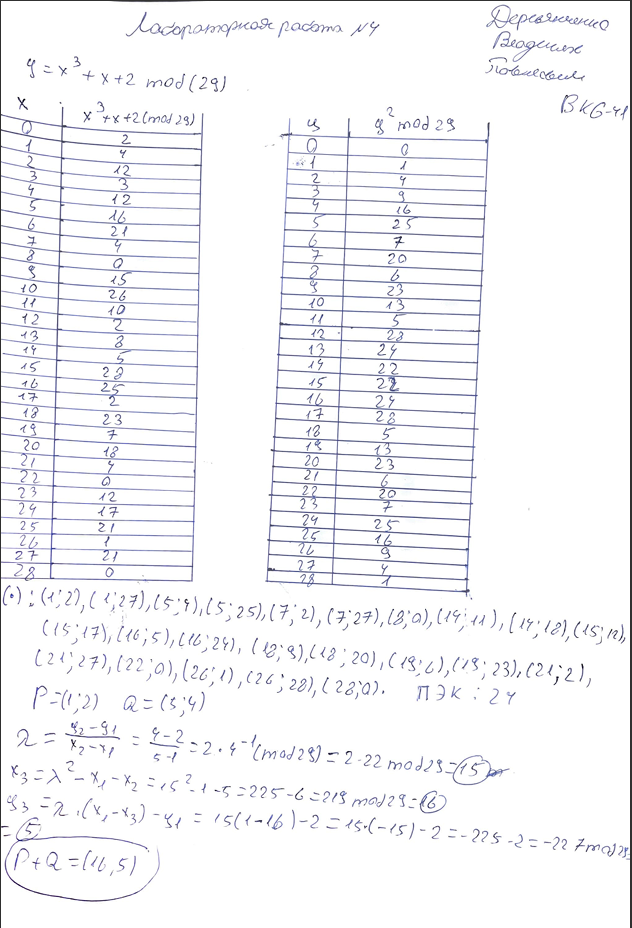 Лабораторная работа №4
Владимих
ВКБ-41
y = x³ + x + 2 mod (29)
x x³+x+2 (mod 29)
0 2
1 4
2 12
3 3
4 12
5 16
6 21
7 4
8 0
9 15
10 26
11 10
12 2
13 8
14 5
15 28
16 25
17 2
18 23
19 7
20 18
21 4
22 0
23 12
24 17
25 21
26 1
27 21
28 0
y y² mod 29
0 0
1 1
2 4
3 9
4 16
5 25
6 7
7 20
8 6
9 23
10 13
11 5
12 28
13 24
14 22
15 22
16 24
17 28
18 5
19 13
20 23
21 6
22 20
23 7
24 25
25 16
26 9
27 4
28 1
(0); (1;2), (1;27), (5;4), (5;25), (7;2), (7;27), (8;0), (14;11), (14;18), (15;12),
(15;17), (16;5), (16;24), (18;9), (18;20), (19;6), (19;23), (21;2),
(21;27), (22;0), (26;1), (26;28), (28;0). ПЭК: 24
P=(1;2) Q=(5;4)
λ = y₂-y₁/x₂-x₁ = 4-2/5-1 = 2·4⁻¹(mod 29) = 2·22 mod 29 = 15
x₃ = λ² - x₁ - x₂ = 15² - 1 - 5 = 225 - 6 = 219 mod 29 = 16
y₃ = λ·(x₁-x₃) - y₁ = 15(1-16) - 2 = 15·(-15) - 2 = -225 - 2 = -227 mod 29 =
= 5
P+Q = (16,5)